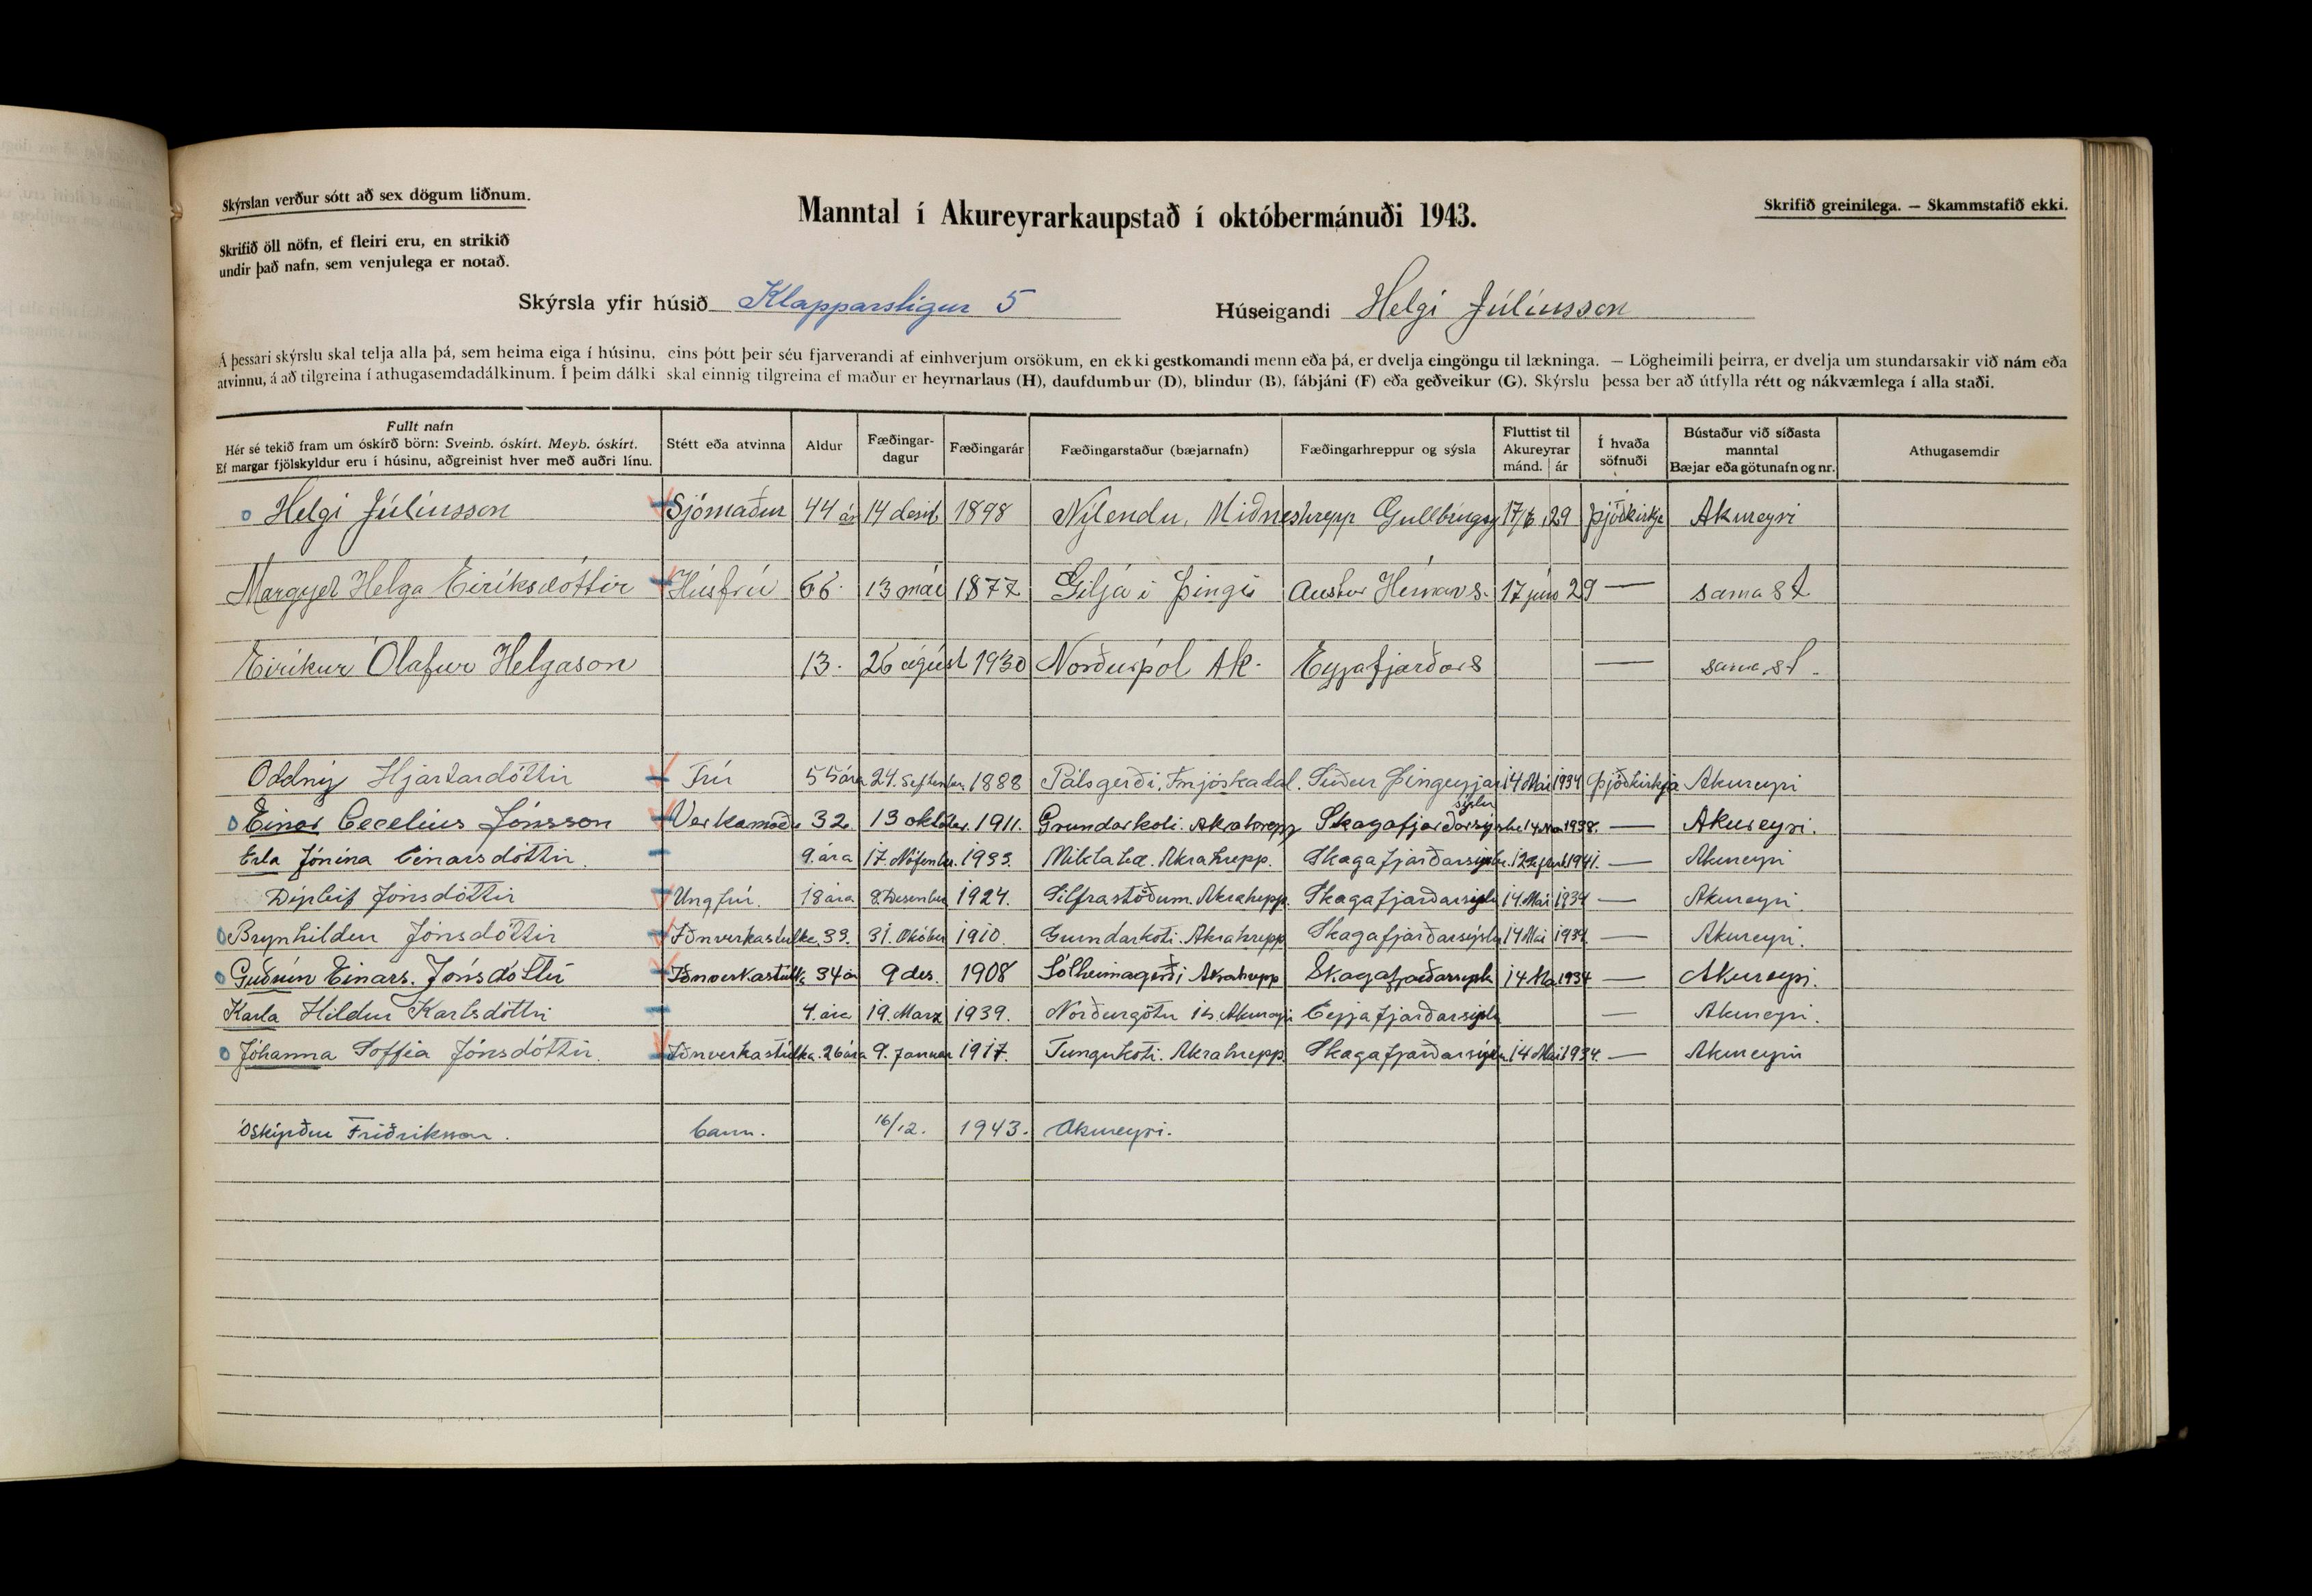 Skýrslan verður sótt að sex dögum liðnum.
Skrifið öll nöfn, ef fleiri eru, en strikið
undir það nafn, sem venjulega er notað.
Manntal í Akureyrarkaupstað í októbermánuði 1943.
Skrifið greinilega. — Skammstafið ekki.
Skýrsla yfir húsið Klapparstígur 5 Húseigandi Helgi Júlíusson
Á þessari skýrslu skal telja alla þá, sem heima eiga í húsinu, eins þótt þeir séu fjarverandi af einhverjum orsökum, en ekki gestkomandi menn eða þá, er dvelja eingöngu til lækninga. — Lögheimili þeirra, er dvelja um stundarsakir við nám eða
atvinnu, á að tilgreina í athugasemdadálkinum. Í þeim dálki skal einnig tilgreina ef maður er heyrnarlaus (H), daufdumbur (D), blindur (B), fábjáni (F) eða geðveikur (G). Skýrslu þessa ber að útfylla rétt og nákvæmlega í alla staði.
Fullt nafn
Hér sé tekið fram um óskírð börn: Sveinb. óskírt. Meyb. óskírt.
Ef margar fjölskyldur eru í húsinu, aðgreinist hver með auðri línu.
Stétt eða atvinna
Aldur
Fæðingar-
dagur
Fæðingarár
Fæðingarstaður (bæjarnafn)
Fæðingarhreppur og sýsla
Fluttist til
Akureyrar
mánd. ár
Í hvaða
söfnuði
Bústaður við síðasta
manntal
Bæjar eða götunafn og nr.
Athugasemdir
Helgi Júlíusson Sjómaður 44 ár 14 desb 1898 Nýlendu, Miðneshrepp Gullbringu 29 þjóðkirkja Akureyri
Helga Eiríksdóttir Húsfrú 66. 13 maí 1877 Gilja í Þingi Austur Húnavs. 17 júní 29 — sama st
Eiríkur Ólafur Helgason 13. 26 ágúst 1930 Norðurpól Ak. Eyjafjarðars — sama st.
Oddný Hjartardóttir Frú 55 ára 24. September 1888 Pálsgerði, Fnjóskadal. Suður Þingeyjar sýslu 14 Mai 1934 Þjóðkirkja Akureyri
Einar Cecelius Jónsson Verkamaður 32. 13 október 1911. Grundarkoti. Akrahrepp Skagafjarðarsýslu 14 Mai 1938. — Akureyri.
Erla Jónína Einarsdóttir. 9. ára 17. Nófember. 1933. Miklabæ. Akrahrepp. Skagafjarðarsýslu. 1941. — Akureyri
Dýrleif Jónsdóttir Ungfrú. 18 ára 8. Desember 1924. Silfrastöðum. Akrahrepp. Skagafjarðarsýslu 14. Mai 1934 — Akureyri
Brynhildur Jónsdóttir Iðnverkastúlka. 33. 31. Október 1910. Grundarkoti. Akrahrepp Skagafjarðarsýslu 14 Mai 1934 — Akureyri.
Guðrún Einars. Jónsdóttir Iðnverkastúlka 34 ár 9 des. 1908 Sólheimagerði Akrahrepp Skagafjarðarsýsla 14 Ma 1934 — Akureyri.
Karla Hildur Karlsdóttir 4. ára 19. Marz 1939. Norðurgötu Akureyri Eyjafjarðarsýsla — Akureyri.
Jóhanna Soffía Jónsdóttir. Iðnverkastúlka. 26 ára 9. Januar 1917. Tungukoti. Akrahrepp Skagafjarðarsýslu. 14 Mai 1934. — Akureyri
Óskýrður Friðriksson. barn. 16/12. 1943. Akureyri.